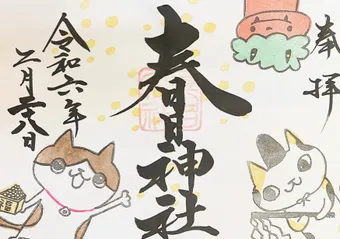 奉拝
春日神社
令和六年
二月二八日
福